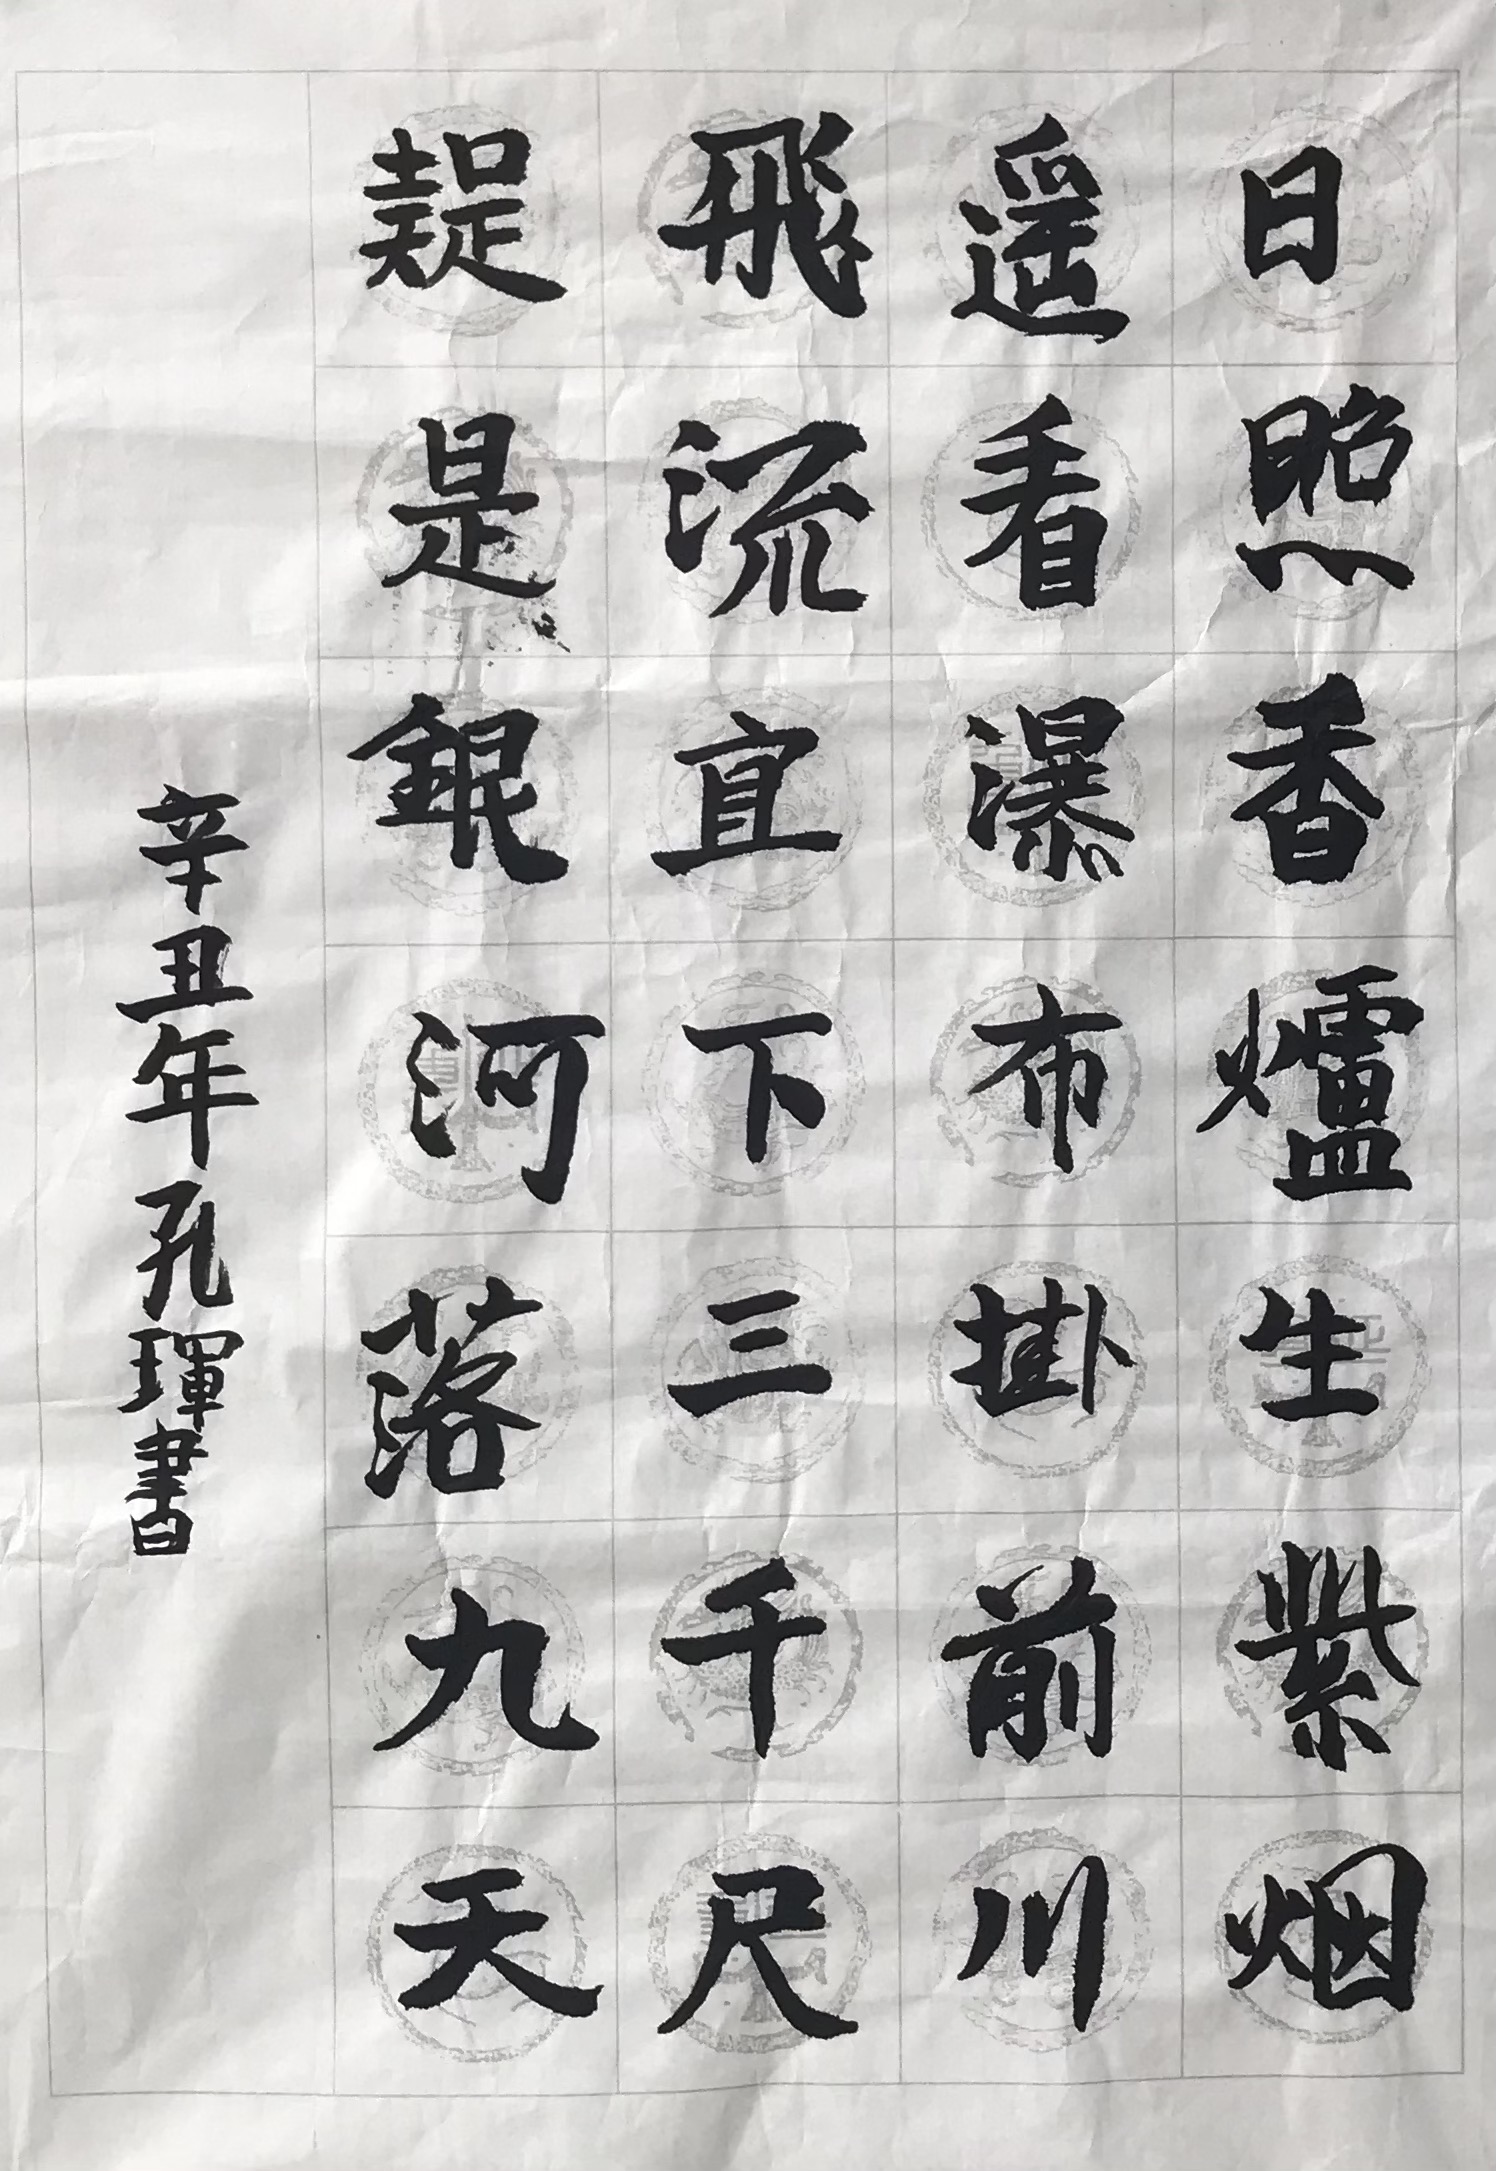 日照香爐生紫烟
遥看瀑布掛前川
飛流直下三千尺
是銀河落九天
辛丑年孔琿書